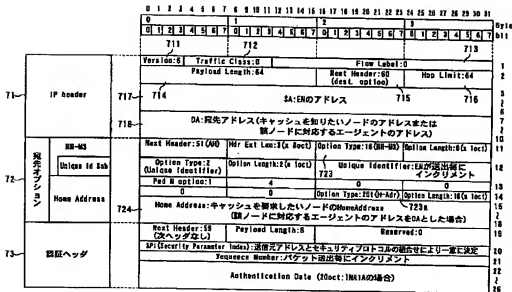 0 1 2 3 4 5 6 7 8 9 10 11 12 13 14 15 16 17 18 19 20 21 22 23 24 25 26 27 28 29 30 31
0 1 2 3 Byte
0 1 2 3 4 5 6 7 0 1 2 3 4 5 6 7 0 1 2 3 4 5 6 7 0 1 2 3 4 5 6 7 bit
711 712 713
Version:6 Traffic Class:0 Flow Label:0 1
Payload Length:64 Next Header:60 (dest. option) Hop Limit:64 2
71 IP header
714 715 716
717 SA:ENのアドレス
718 DA:宛先アドレス(キャッシュを知りたいノードのアドレスまたは
該ノードに対応するエージェントのアドレス) 10
72 宛先オプション
Next Header:51(AH) Hdr Ext Len:3(x 8oct) Option Type:16 Option Length:8(x 1oct) 11
Unique Id Sub Option Type:2 (Unique Identifier) Option Length:2(x 1oct) Unique Identifier:ENが送出毎に
インクリメント 12
723
Pad N option:1 4 0 0 13
Home Address 0 0 Option Type:201(H-Adr) Option Length:16(x 1oct) 14
724 723a
Home Address:キャッシュを要求したいノードのHomeAddress
(該ノードに対応するエージェントのアドレスをDAとした場合) 18
73 認証ヘッダ
Next Header:59 (次ヘッダなし) Payload Length:6 Reserved:0 19
SPI(Security Parameter Index):送信元アドレスとセキュリティプロトコルの組合せにより一意に決定 20
Sequence Number:パケット送出毎にインクリメント 21
Authentication Date (20oct:の場合) 22
26